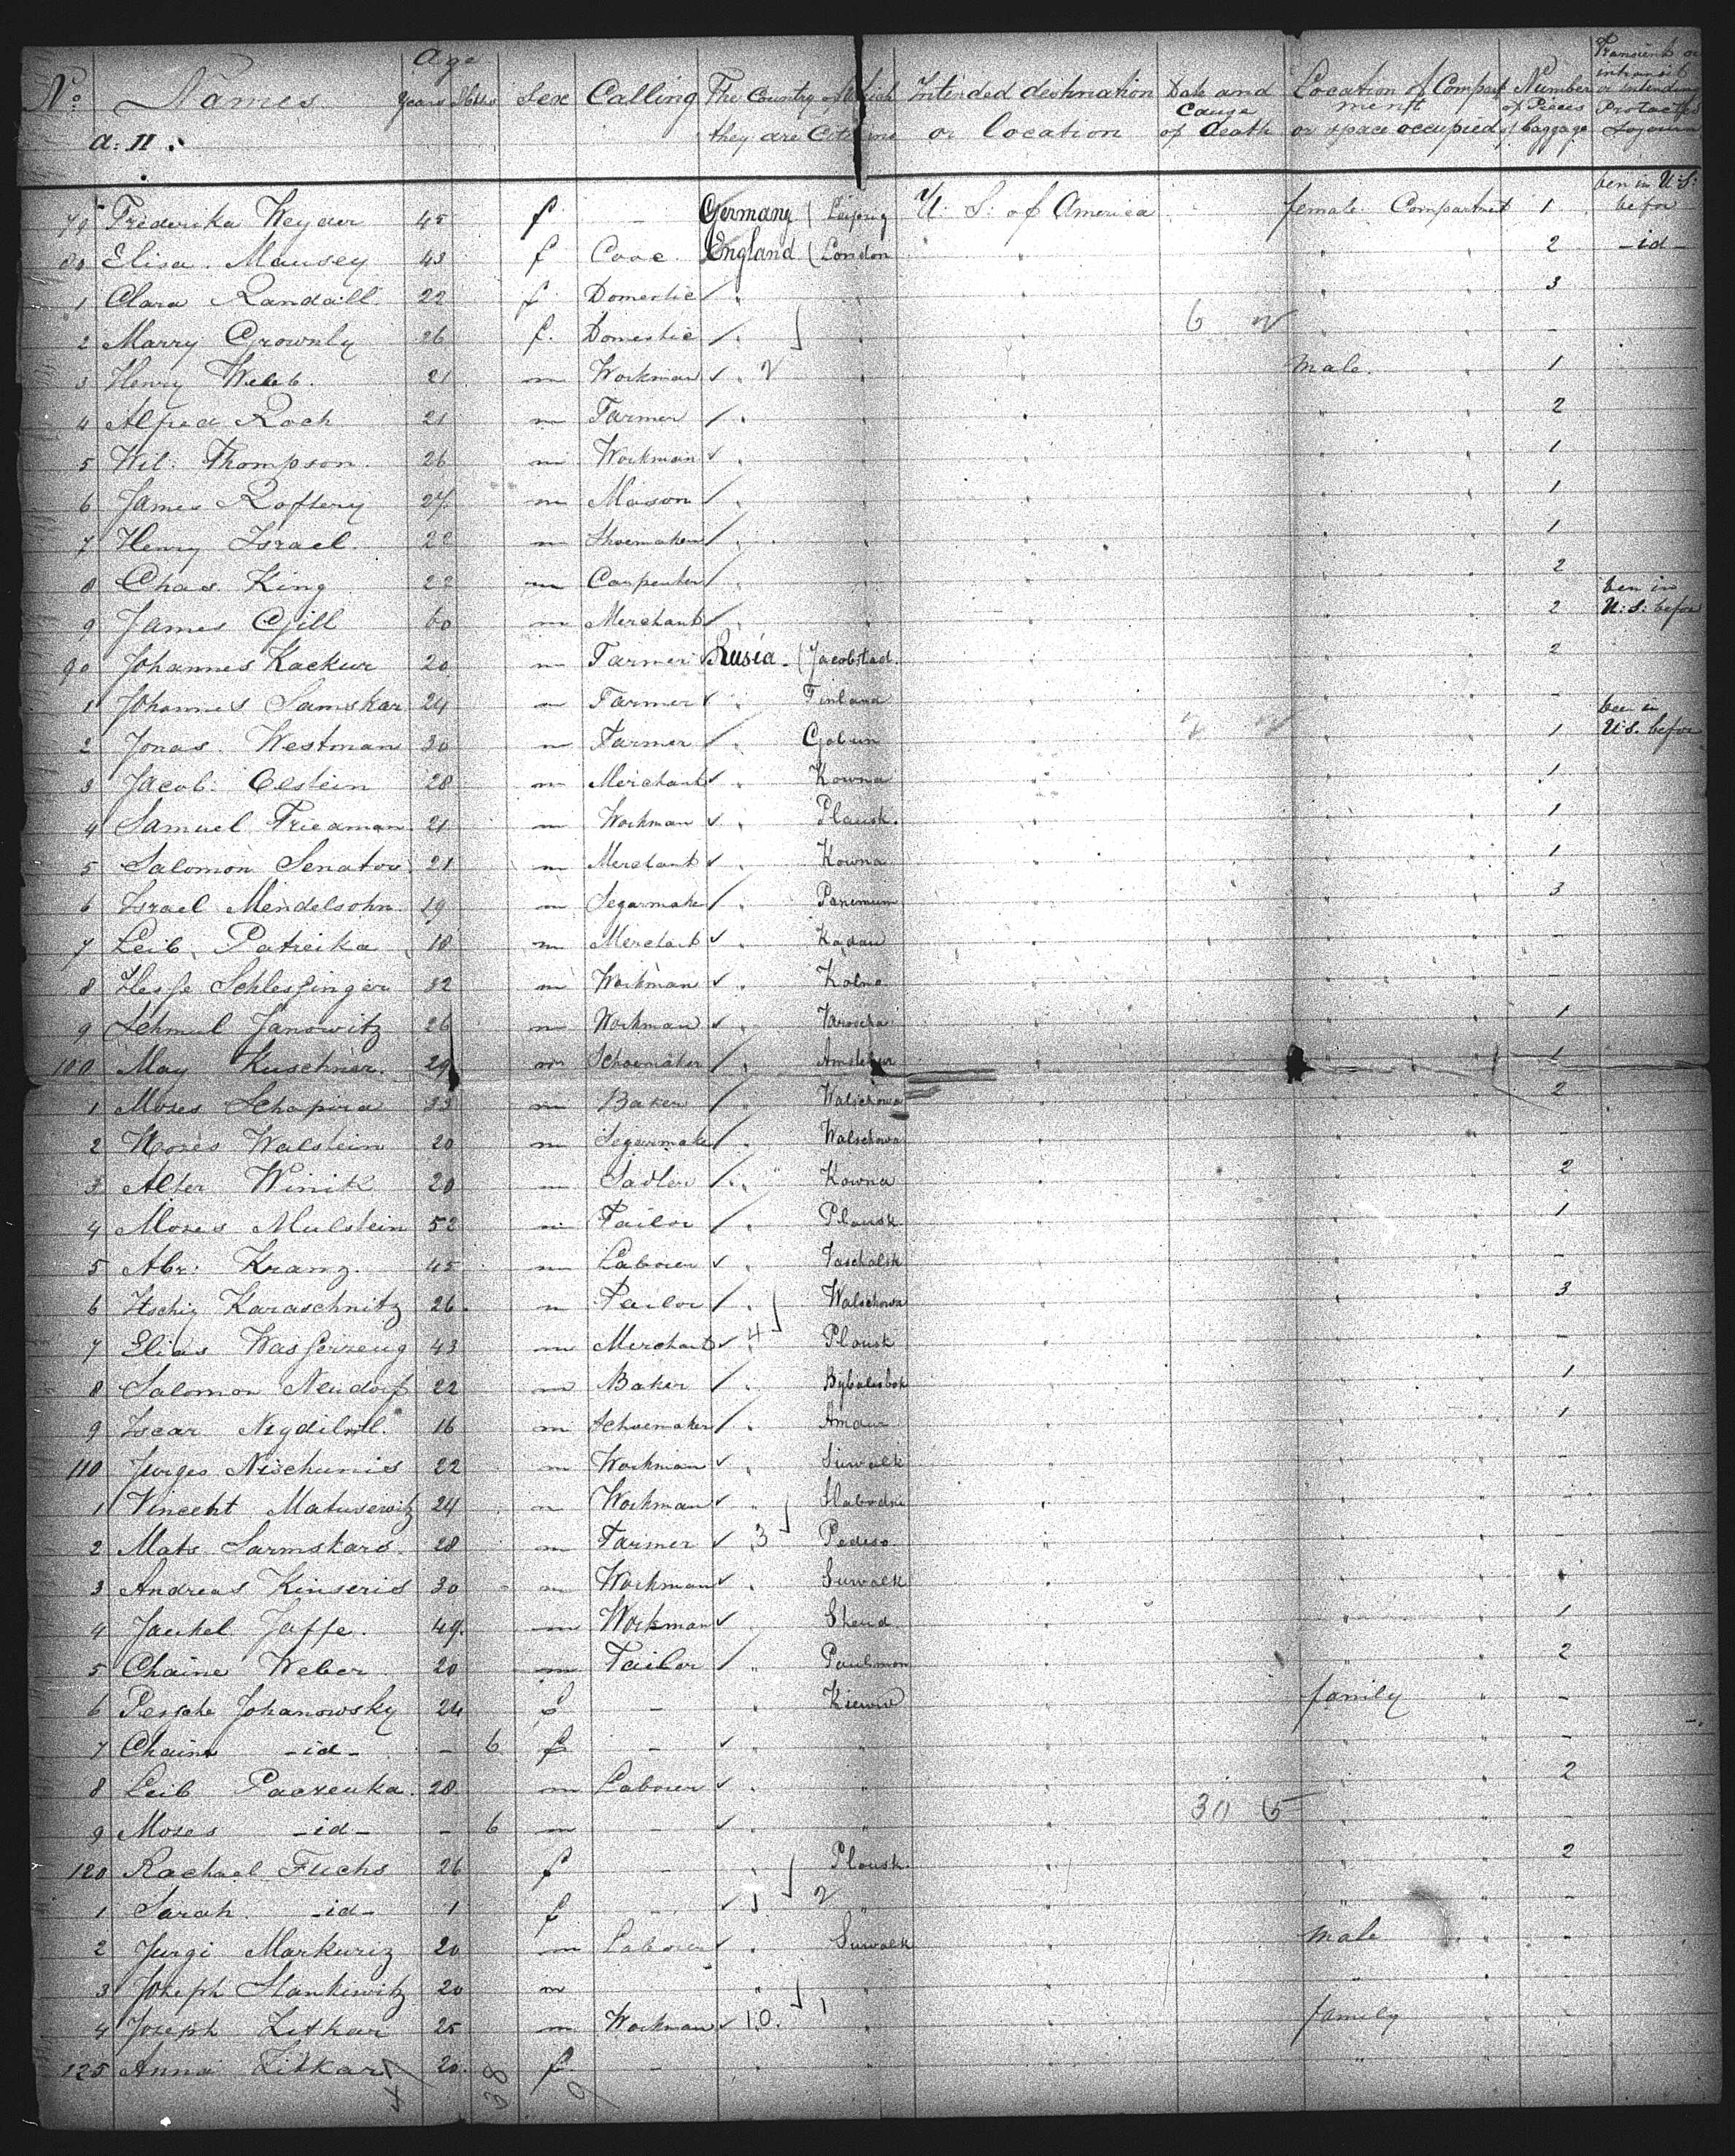 Age
No Names Years Mths Sex Calling The Country of Which they are Citizens Intended destination or location Date and Cause of death Location of Compartment or space occupied Number of Pieces of baggage Transient or in transit or intending Protracted Sojourn
a: II.
79 Frederika Heyder 45 f - Germany (Leipzig U: S: of America female Compartmet 1 ben in U:S: before
80 Elisa Mausey 43 f Cooc England (London " " 2 -id-
1 Clara Randall 22 f Domestic " " " 3
2 Marry Grownly 26 f. Domestic " " 6 " -
3 Henry Webb. 21 m Workman " 2 " male. " 1
4 Alfred Roch 21 m Farmer " " " 2
5 Wil: Thompson 26 m Workman " " 1
6 James Roftery 27 m Mason " " 1
7 Henry Israel 22 m Shoemaker " " 1
8 Chas. King 22 m Carpenter " " 2
9 James Gill 60 m Merchant " " 2 ben in U:S: before
90 Johannes Kackur 20 m Farmer Rusia - (Jacobstad. " 2
1 Johannes Samskar 24 m Farmer " Finland " -
2 Jonas Westman 30 m Farmer " " 1 been in U:S. before
3 Jacob Olstein 28 m Merchant " Kowna " 1
4 Samuel Friedman 21 m Workman " Plausk. " 1
5 Salomon Senator 21 m Merchant " Kowna " 1
6 Israel Mendelsohn 19 m Segarmaker " " 3
7 Leib Patreika 18 m Merchant " Kadau " -
8 Hesse Schlessinger 32 m Workman " Kolno " -
9 Schmul Janowitz 26 m Workman " " 1
100 May Kuschner. 29 m Schoemaker " " 1
1 Moses Schapira 33 m Baker " Walschowa " 2
2 Moses Walstein 20 m Segarmaker " Walschowa " -
3 Alter Winik 20 m Sadler " Kowna " 2
4 Moses Mulstein 52 m Tailor " Plousk " 1
5 Abr: Kranz. 45 m Laborer " " -
6 Itschig Karaschnitz 26 m Tailor " Walschowa " 3
7 Elias Wasserzeug 43 m Merchant " 4 Plousk " -
8 Salomon Neudorf 22 m Baker " " 1
9 Iscar 16 m Schoemaker " Amdur " 1
110 Jurges Nischunis 22 m Workman " Suwalk " -
1 Vincent Matuserwitz 24 m Workman " " -
2 Mats Sarmskars 28 m Farmer " 3 Pederso " -
3 Andreas Kinseris 30 m Workman " Suwalk "
4 Jankel Jaffe. 49. m Workman " " 1
5 Chaine Weber 20 m Tailor " " 2
6 Pessche Johanowsky 24 f - " family " -
7 Chaine -id- - 6 f - " -
8 Leib Paczenka. 28 m Laborer " " 2
9 Moses -id- - 6 m - " 30 5 " -
120 Rachael Fuchs 26 f - " Plousk. " 2
1 Sarah -id- 1 f - " 2 " -
2 Jurgi Markuriz 20 m Laborer " Suwalk male " -
3 Joseph Stankiwitz 20 m " " -
4 Joseph Litkar 25 m Workman 10. 1 family " -
125 Anna Litkar 20. f - " " " -
38 9